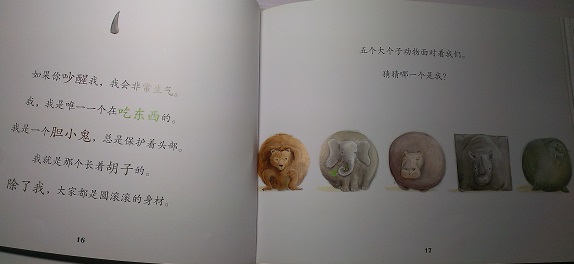 如果你吵醒我，我会非常生气。
我，我是唯一一个在吃东西的。
我是一个胆小鬼，总是保护着头部。
我就是那个长着胡子的。
除了我，大家都是圆滚滚的身材。
16
五个大个子动物面对着我们。
猜猜哪一个是我？
17